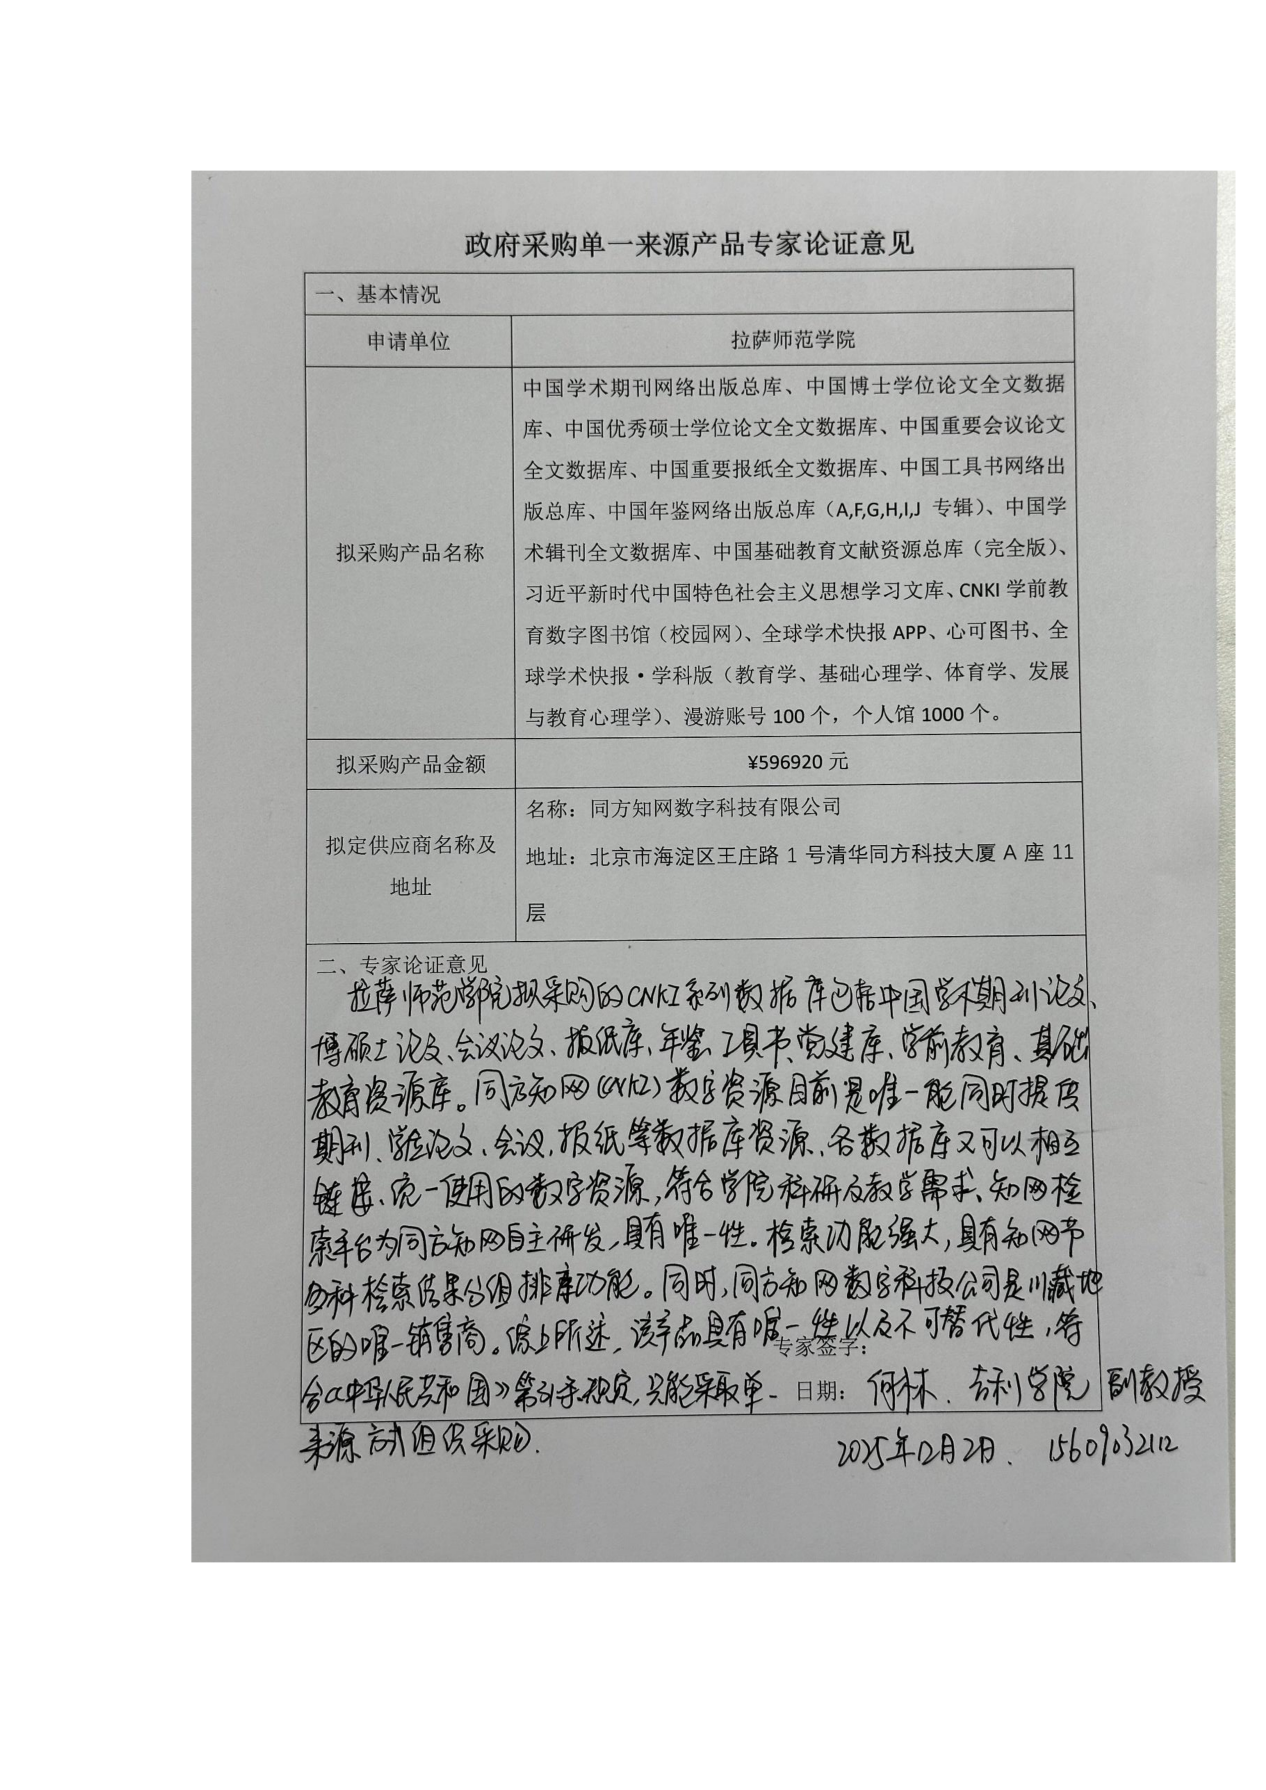 政府采购单一来源产品专家论证意见
一、基本情况
申请单位
拉萨师范学院
拟采购产品名称
中国学术期刊网络出版总库、中国博士学位论文全文数据
库、中国优秀硕士学位论文全文数据库、中国重要会议论文
全文数据库、中国重要报纸全文数据库、中国工具书网络出
版总库、中国年鉴网络出版总库（A,F,G,H,I,J 专辑）、中国学
术辑刊全文数据库、中国基础教育文献资源总库（完全版）、
习近平新时代中国特色社会主义思想学习文库、CNKI 学前教
育数字图书馆（校园网）、全球学术快报 APP、心可图书、全
球学术快报·学科版（教育学、基础心理学、体育学、发展
与教育心理学）、漫游账号 100 个，个人馆 1000 个。
拟采购产品金额
¥596920 元
拟定供应商名称及
地址
名称：同方知网数字科技有限公司
地址：北京市海淀区王庄路 1 号清华同方科技大厦 A 座 11
层
二、专家论证意见
拉萨师范学院拟采购的CNKI系列数据库包括中国学术期刊论文、
博硕士论文、会议论文、报纸库、年鉴、工具书、党建库、学前教育、基础
教育资源库。同方知网(CNKI)数字资源目前是唯一能同时提供
期刊、学位论文、会议，报纸等数据库资源、各数据库又可以相互
链接、统一使用的数字资源，符合学院科研及教学需求、知网检
索平台为同方知网自主研发，具有唯一性。检索功能强大，具有知网节
多种检索结果分组排序功能。同时，同方知网数字科技公司是川藏地
区的唯一销售商。综上所述，该产品具有唯一性以及不可替代性，符
专家签字：
合《中华人民共和国》第31条规定，只能采取单一
日期：
何林、吉利学院 副教授
来源方式组织采购.
2025年12月2日、 15609032112